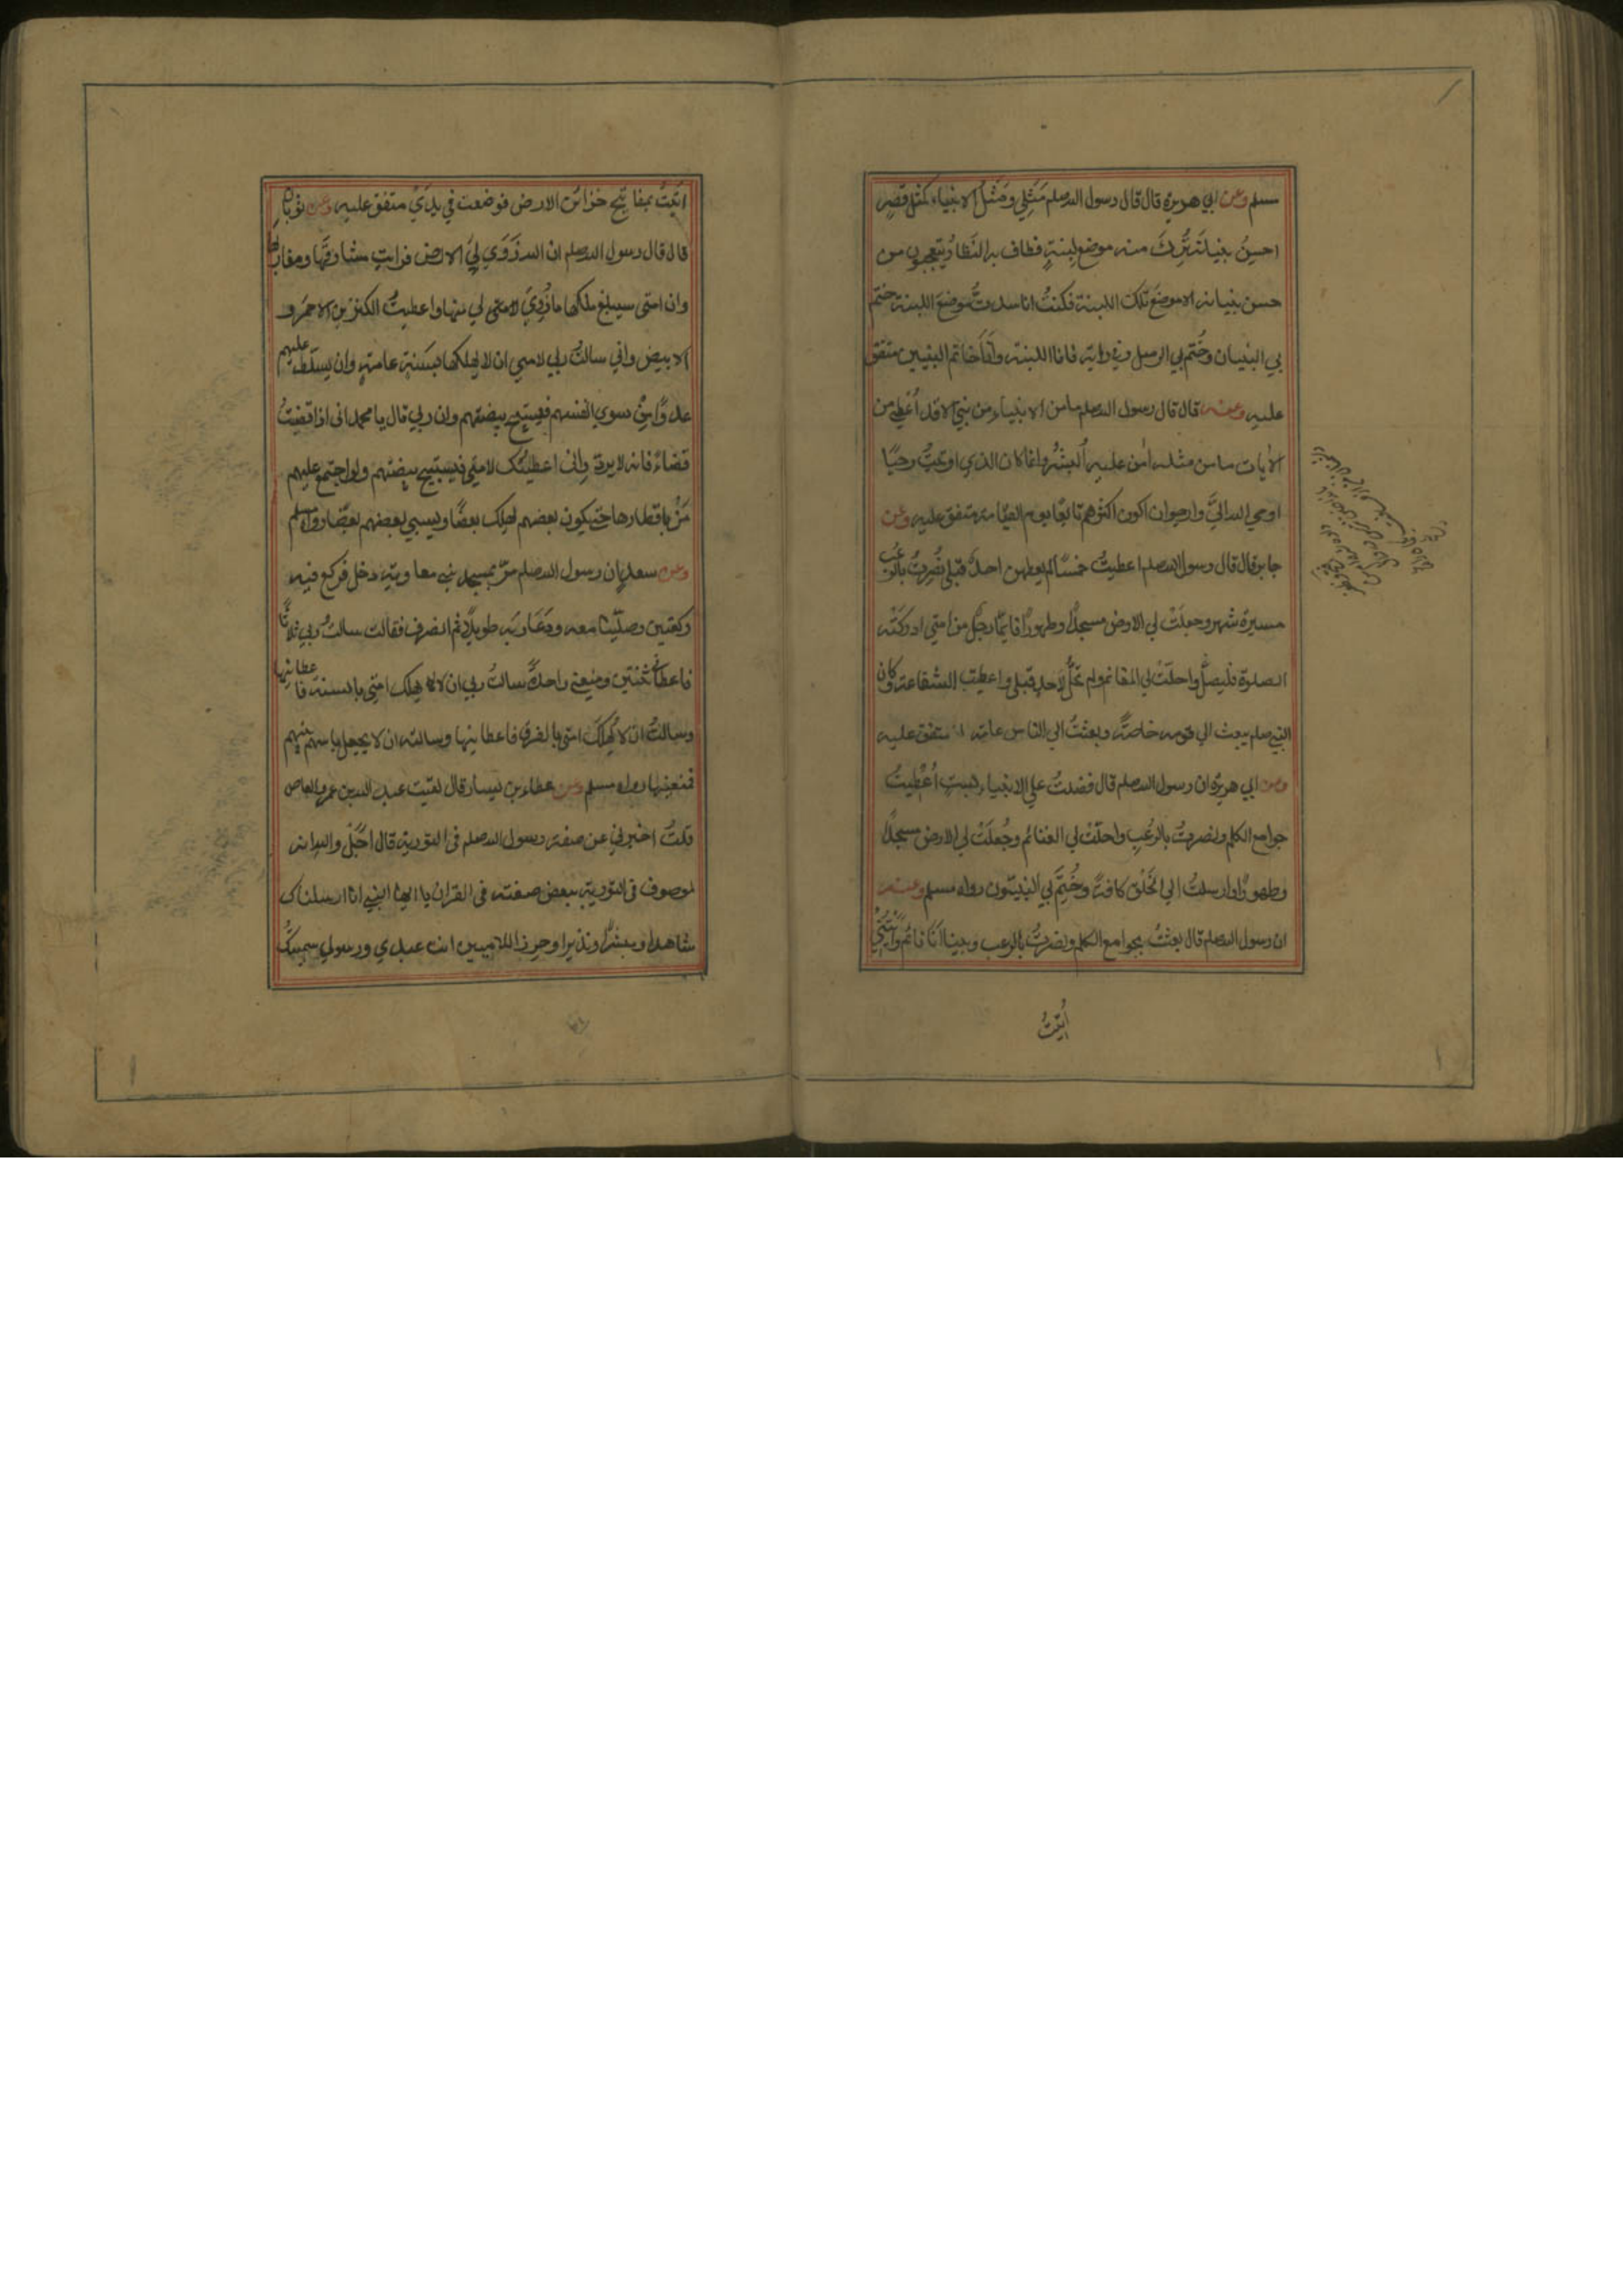 مسلم وعن ابي هريرة قال قال رسول الله صلم مَثَلِي ومَثَلُ الانبياء كمثل قصرٍ
احسِنُ بنيانه تُرِكَ منه موضع لبنةٍ فطاف به النظار يتعجبون من
حسن بنيانه الا موضعَ تلك اللبنة فكنتُ انا سددتُ موضعَ اللبنة ختم
بي البنيان وخُتم بي الرسل وفي رواية فانا اللبنة وأنا خاتم النبيين متفق
عليه وعنه قال قال رسول الله صلم ما من الانبياء من نبي الا قد أُعْطِيَ من
الآيات ما من مثله اٰمن عليه البشرُ وانما كان الذي اوتيتُ وحيًا
اوحي الله اليَّ وارجوا ان اكون اكثرهم تابعًا يوم القيامة متفق عليه وعن
جابر قال قال رسول الله صلم اعطيتُ خمسًا لم يعطهن احدٌ قبلي نُصِرتُ بالرُّعب
مسيرة شهر وجعلَتْ لي الارض مسجدًا وطهورًا فايّما رجلٍ من امتي ادركَتْه
الصلوة فليصلّ واحلَّتْ لي المغانم ولم تحلَّ لاحدٍ قبلي واعطيت الشفاعة وكان
النبي صلم يبعث الي قومه خاصةً وبعثتُ الي الناس عامة متفق عليه
وعن ابي هريرة ان رسول الله صلم قال فضلتُ علي الانبياء بستٍ أُعْطِيتُ
جوامع الكلم ونصرتُ بالرُّعبِ واحلّتْ لي الغنائم وجُعلَتْ لي الارض مسجدًا
وطهورًا وارسلتُ الي الخَلْق كافةً وخُتِمَ بي النبيّون رواه مسلم وعنه
ان رسول الله صلم قال بعثتُ بجوامع الكلم ونصرتُ بالرعب وبينا أنَا نائم رأَيتُني
اُتِيْتُ
اُتِيْتُ بمفاتيح خزائن الارض فوضعت في يدَيَّ متفق عليه وعن ثوبان
قال قال رسول الله صلم ان الله زَوَي لِيَ الارض فرايت مشارقَها ومغاربها
وان امتى سيبلغ ملكها ما زُوِيَ لي منها واعطيتُ الكنزين الاحمَر و
الابيض واني سالتُ ربي لامتي ان لا يهلكها بسَنةٍ عامةٍ وان لا يسلّط عليهم
عدوًّا مِنْ سوي انفسهم فيستبيح بيضتهم وان ربي قال يا محمد انى اذا قضيتُ
قضاءً فانه لا يردّ وانى اعطيتُك لامتي فيستبيح بيضتهم ولو اجتمع عليهم
مَنْ باقطارها حتي يكون بعضهم يهلك بعضًا ويسبي بعضهم بعضًا رواه مسلم
وعن سعد ان رسول الله صلم مرّ بمسجد بني معاوية دخل فركع فيه
ركعتين وصلّينا معه ودَعَا ربَّه طويلاً ثم انصرف فقالت سالتُ ربي ثلاثًا
فاعطاني ثنتين ومنعني واحدةً سالتُ ربي ان لا يهلك امتي بالسنة فاعطانيها
وسالتُ ان لا يُهلِكَ امتي بالغرق فاعطانيها وسالته ان لا يجعل باسهم بينهم
فمنعنيها رواه مسلم وعن عطاء بن يسار قال لقيت عبد الله بن عمرو بن العاص
قلتُ اخبرني عن صفة رسول الله صلم فى التورية قال اَجَلْ والله انه
لموصوف فى التورية ببعض صفته فى القران يا ايها النبي انا ارسلناك
شاهدا ومبشّرًا ونذيرا وحرزا للاميين انت عبدي ورسولي سميتكَ